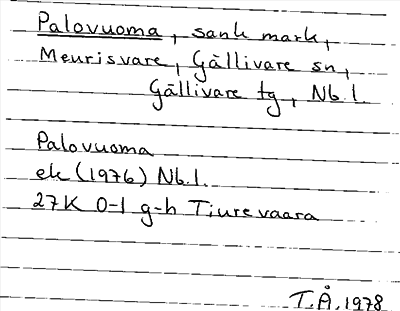 Palovuoma, sank mark,
Meurisvare, Gällivare sn,
Gällivare tg, Nb. l.
Palovuoma
ek (1976) Nb. l.
27K 0-1 g-h Tiurevaara
T.Å. 1978